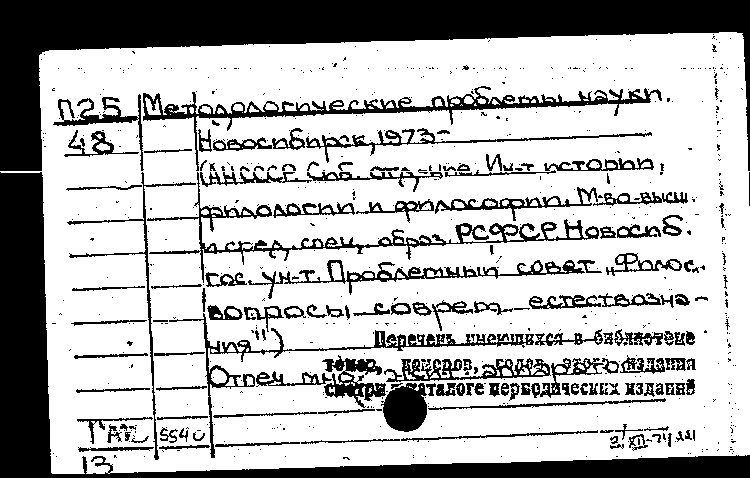 П25 Методологические проблемы науки.
48 Новосибирск, 1973-
(АН СССР. Сиб. отд-ние. Ин-т истории,
филологии и философии. М-во высш.
и сред. спец. образ. РСФСР. Новосиб.
гос. ун-т. Проблемный совет „Филос.
вопросы соврем. естествозна-
ния")
Перечень имеющихся в библиотеке
томов, номеров, годов этого издания
Отпеч. множит. аппаратом
смотри в каталоге периодических изданий
5540
XII-74
13